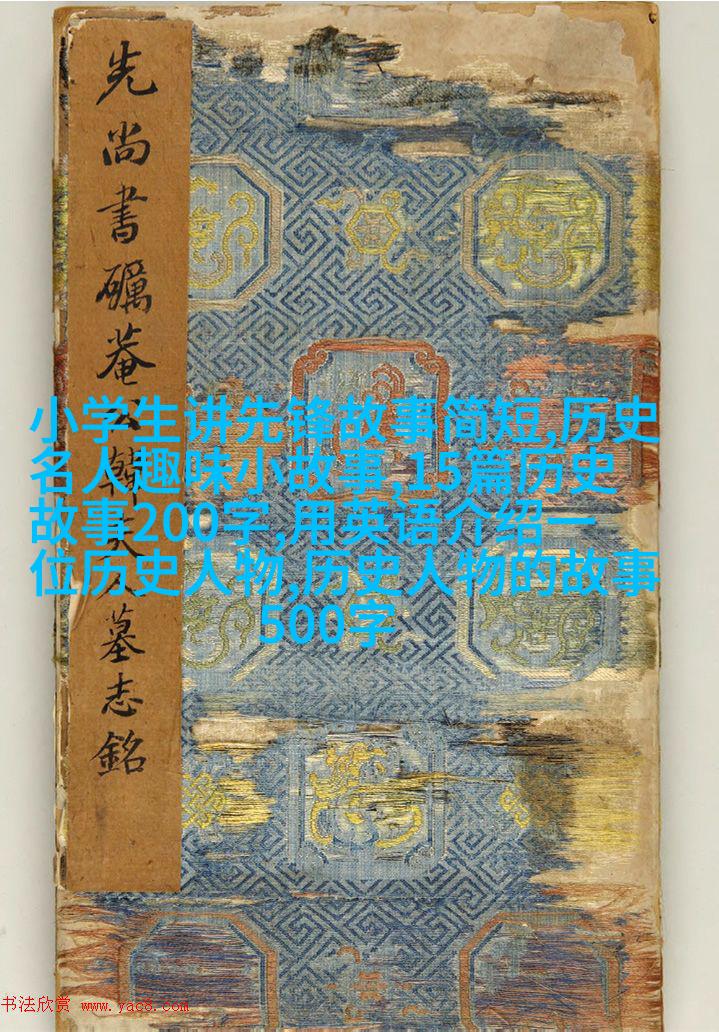 先尚書礪菴公韓夫人墓志銘
小学生讲先锋故事简短,历史
名人趣味小故事,15篇历史
故事200字,用英语介绍一
位历史人物,历史人物的故事
500字
书法欣赏 www.yac8.com